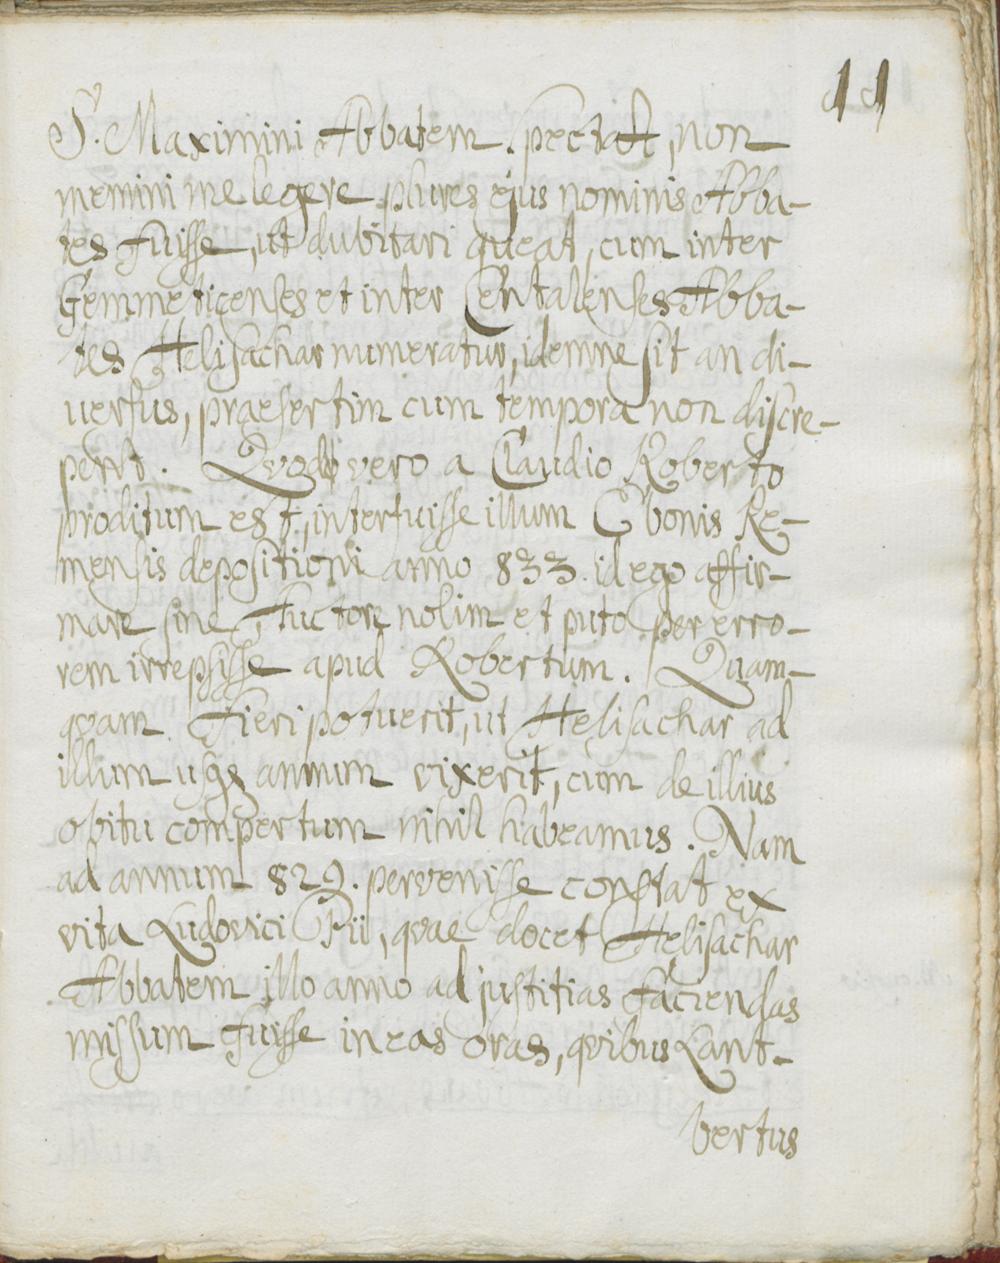 11
S. Maximini Abbatem spectat, non
memini me legere plures ejus nominis Abba-
tes fuisse, ut dubitari queat, cum inter
Gemmeticenses et inter Centulenses Abba-
tes Helisachar numeratur, idemne sit an di-
uersus, praesertim cum tempora non discre-
pent. Qvod vero a Claudio Roberto
proditum est, interfuisse illum Ebonis Re-
mensis depositioni anno 833. id ego affir-
mare sine Auctore nolim et puto per erro-
rem irrepsisse apud Robertum. Quam-
qvam fieri potuerit, ut Helisachar ad
illum usqs annum vixerit, cum de illius
obitu compertum nihil habeamus. Nam
ad annum 829. pervenisse constat ex
vita Ludovici Pii, qvae docet Helisachar
Abbatem illo anno ad justitias faciendas
missum fuisse in eas oras, qvibus Lant-
bertus